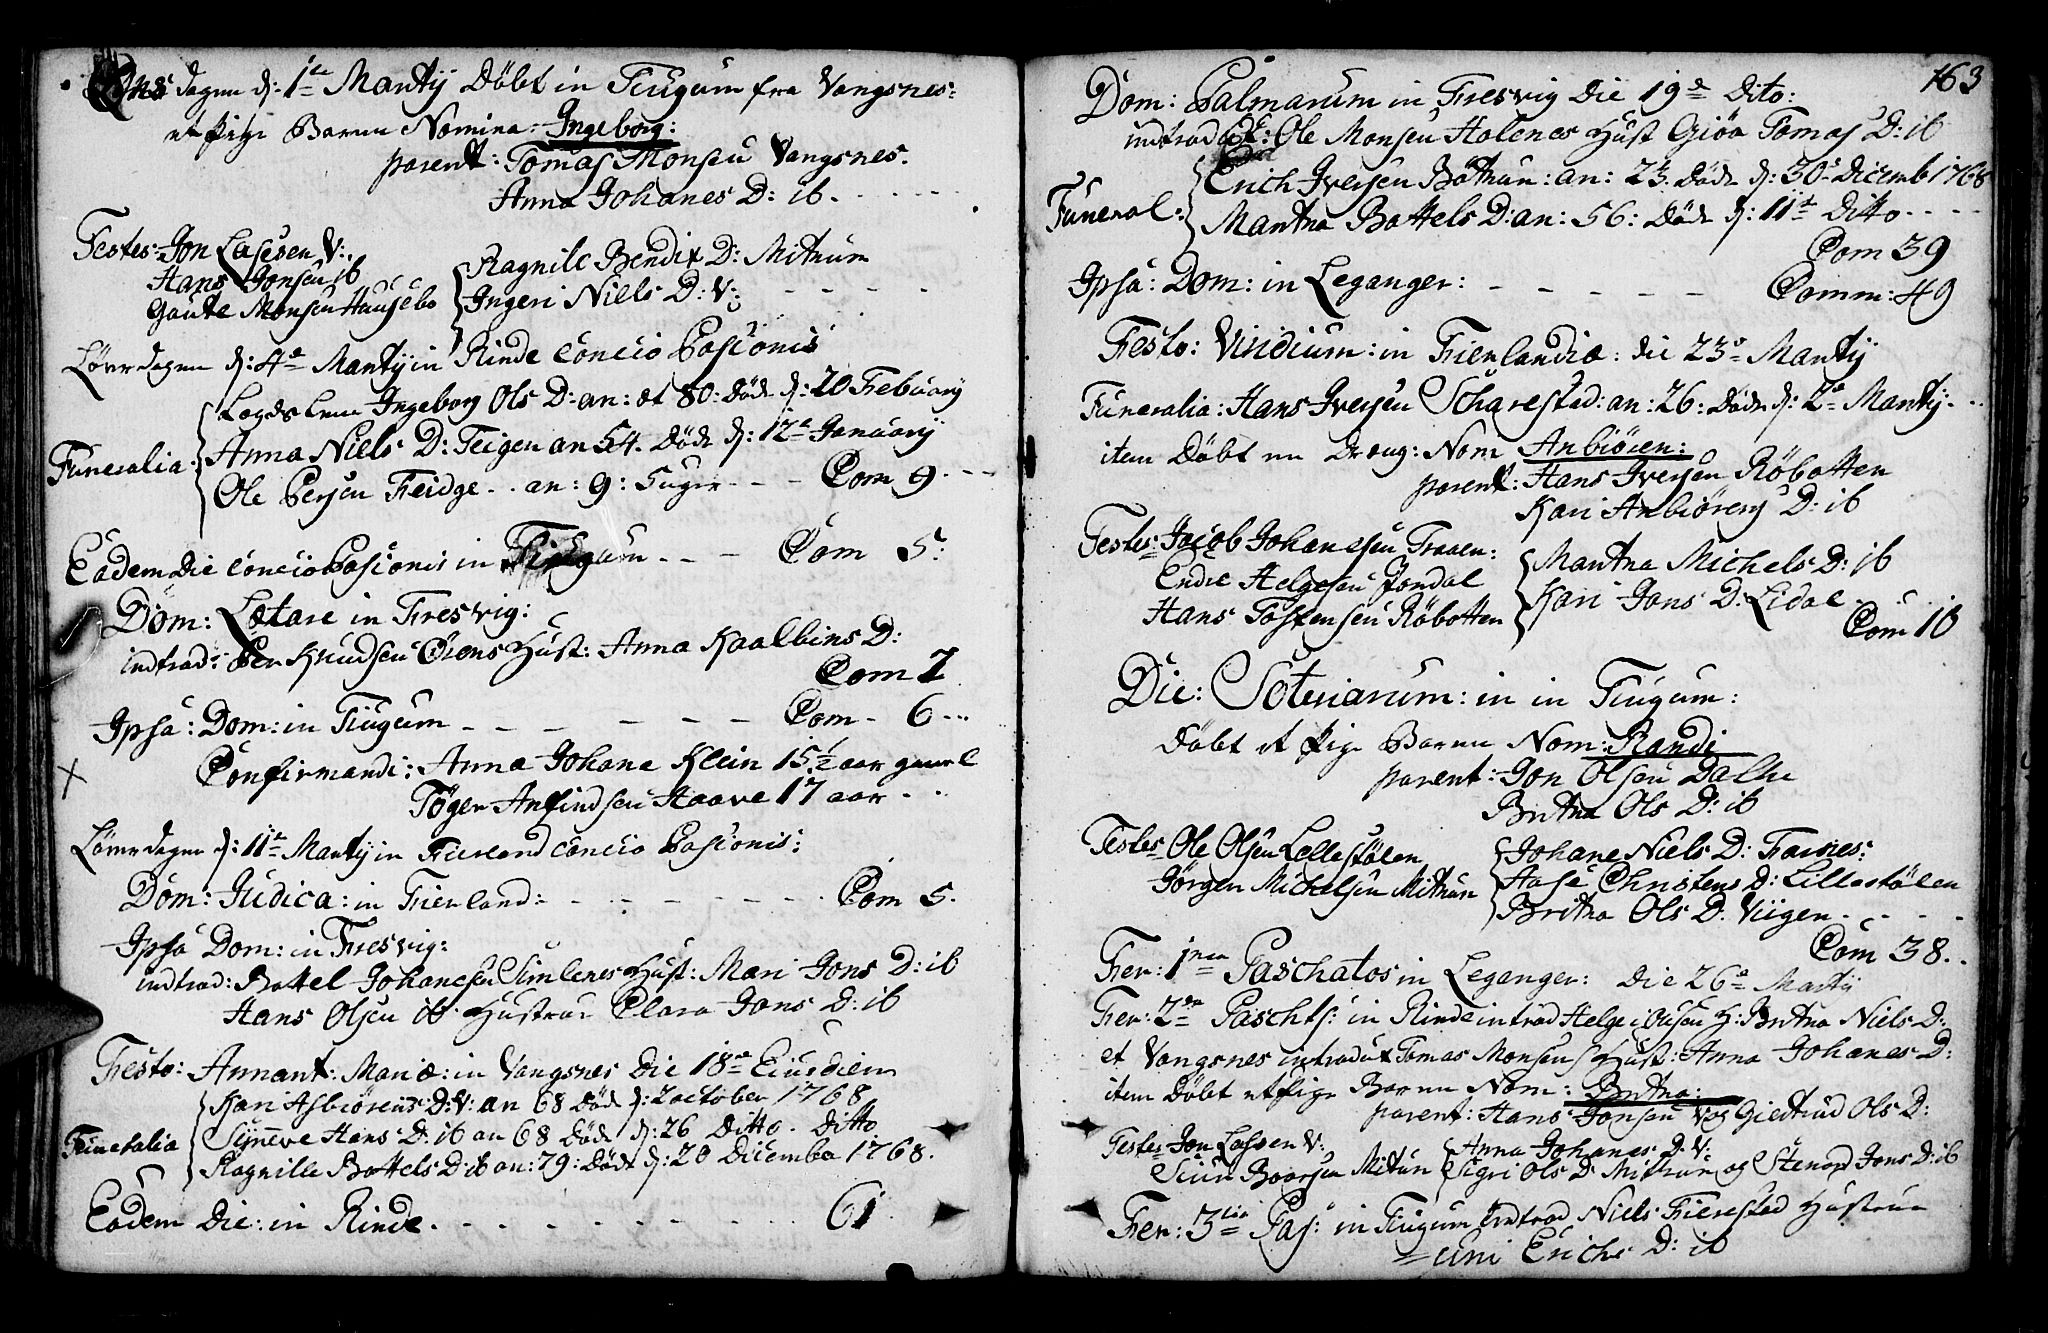 Onsdagen d: 1te Martij Döbt in Tiugum fra Vangsnes:
et pige Barnn Nomina: Ingeborg:
parent: Tomas Monsen Vangsnes.
Anna Johanes D: ib.
Testes: Jon Lassen V:
Hans Jonsen ib
Gaute Monsen Hausebo
Ragnile Bendix D: Mitrum
Ingeri Niels D: V:
Löverdagen d: 4de Martij in Rinde concio Pasionis
Funeralia:
Logds Lem Ingeborg Ols D: an: æt 80: Döde d: 20 Febuarij
Anna Niels D: Teigen an 54. Döde d: 12te Januarij
Ole Persen Feidge - . an: 9: Com 9
Eadem Die concio Pasionis in Tiugum - - Com 5:
Dom: Lætare in Fresvig:
introd: Per Knudsen Öiens Hust: Anna Kaalbins D:
Com 7
Ipsa: Dom: in Tiugum - - - Com - 6
Confirmandi: Anna Johana Klein 15½ aar gamel
Töger Anfindsen Haave 17 aar
Löverdagen d: 11te Martij in Fierland concio Pasionis:
Dom: Judica: in Fierland: - - - Com 5.
Ipsa Dom: in Fresvig:
introd: Battel Johanesen Simlenes Hust: Mari Jons D: ib
Hans Olsen ib Hustrue Clara Jons D: ib
Festo: Annant: Mariæ: in Vangsnes Die 18de Eiusdiem
Funeralia
Kari Asbiörens D: V: an 68 Död d: 2 october 1768
Syneve Hans D: ib an 68 Döde d: 26 Ditto. Ditto
Ragnille Battels D: ib an: 79: Döde d: 20 Dicembe 1768.
Eadem Die: in Rinde. - - - 61
163
Dom: Palmarum in Fresvig Die 19de Dito:
introd Ole Monsen Holenes Hust Giöa Tomas D: ib
Funeral:
Erich Iversen Böthun: an: 23. Döde d: 30te Dicemb 1768
Martha Battels D: an: 56: Döde d: 11te Ditto
Com 39
Ipsa: Dom: in Leganger: - - - Comm: 49
Festo: Viridium: in Fierlandia: die 23de Martij
Funeralia: Hans Iversen Scharestad: an: 26: Döde d: 2de Martij
item Döbt en Dreng: Nom Anbiören:
parent: Hans Iversen Röbotten
Kari Anbiörens D: ib
Testes Jacob Johanesen Traaen:
Endre Helgesen Jondal
Hans Tostensen Röbotten
Martha Michels D: ib
Kari Jons D. Lidal
Com 10
Die: Soteriarum: in in Tiugum:
Döbt et Pige Barnn Nom: Randi
parent: Jon Olsen Dalhe
Britha Ols D: ib
Testes Ole Olsen Lellestölen
Jörgen Michelsen Mitrun
Johane Niels D: Farnes:
Aase Christens D: Lillestölen
Britha Ols D. Viigen
Com 38.
Fer: 1ma Paschatos in Leganger: Die 26de Martij
Fer: 2da Paschts: in Rinde introd Helge H: Britha Niels D:
et Vangsnes introdux Tomas Monsens Hust: Anna Johanes D:
item Döbt et Pige Barnn Nom: Britha:
parent: Hans Jonsen V og Giertrud Ols D:
Testes Jon Lassen V:
Siur Baarsen Mitun
Anna Johanes D. V:
Sigri Ols D: Mitrum og Stenor Jons D: ib
Fer: 3tia Pas: in Tiugum introd Niels Fierestad Hustrue
uni Erichs D: ib